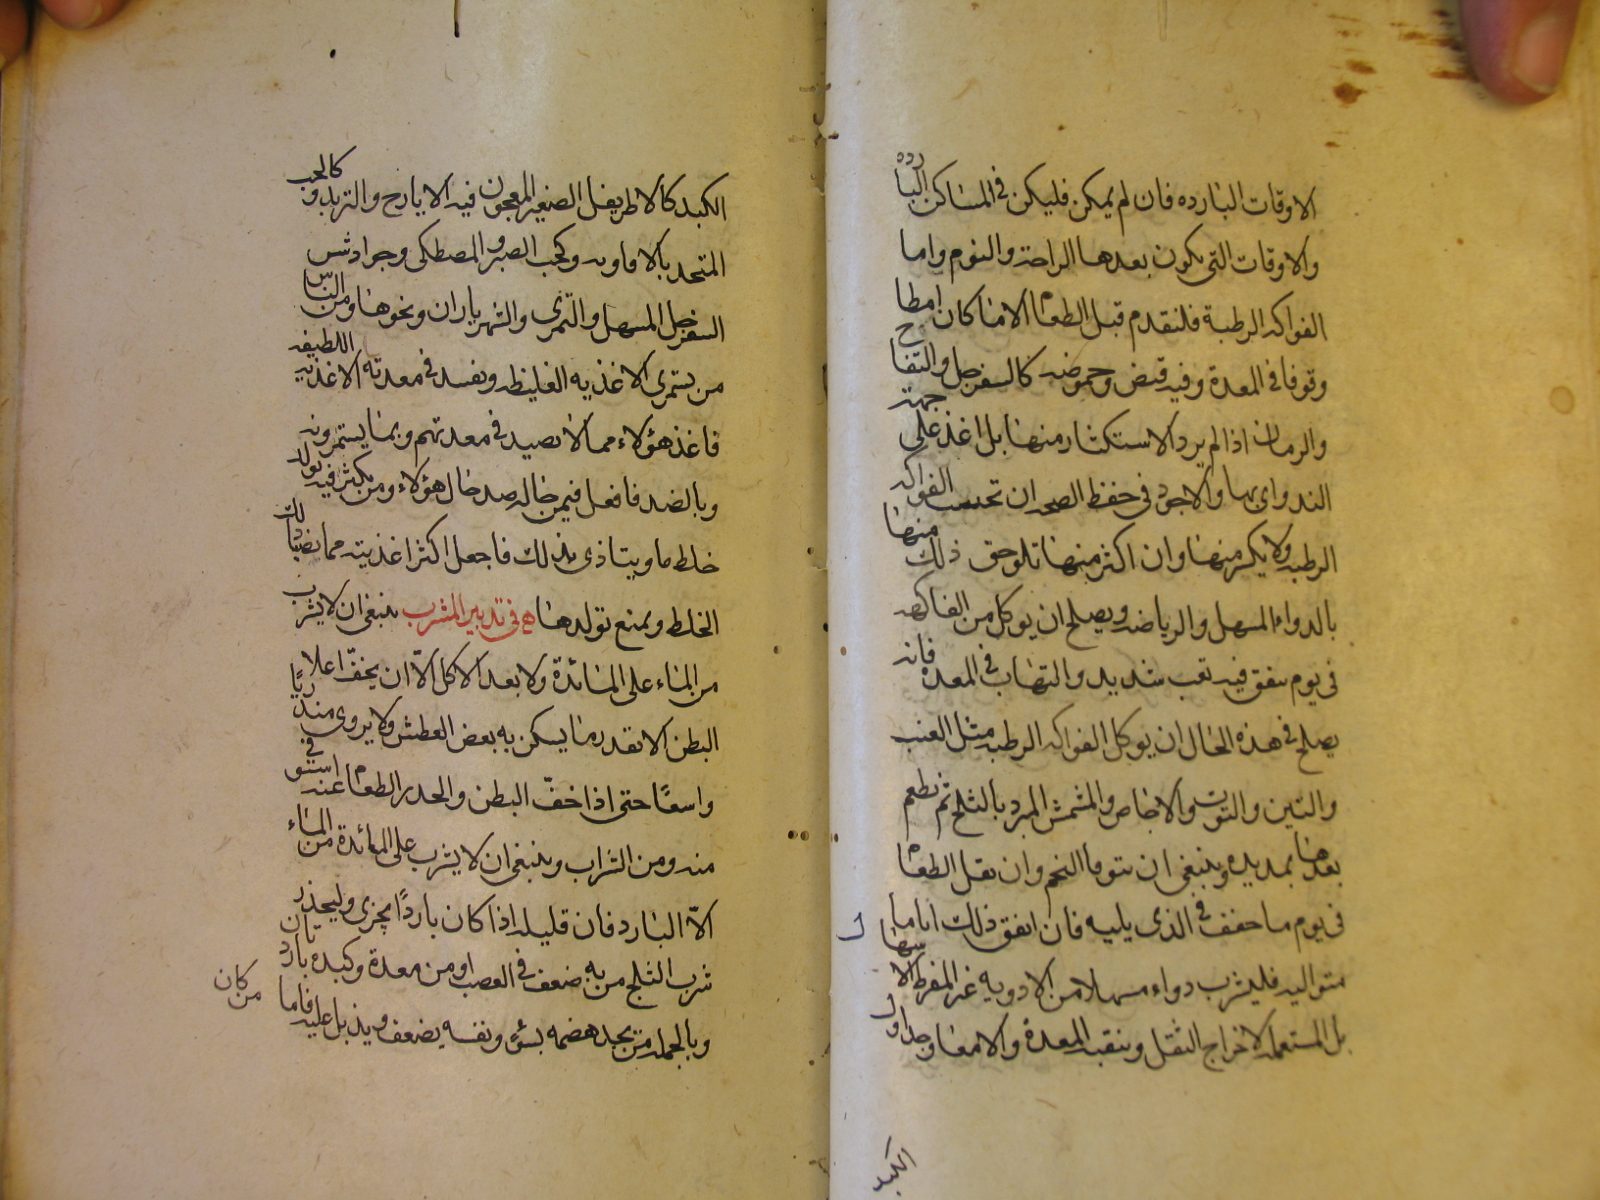 الاوقات الباردة فان لم يمكن فليكن في المساكن الباردة
والاوقات التي يكون بعدها الراحة والنوم واما
الفواكه الرطبة فلتقدم قبل الطعام الا ما كان ابطا
وقوفا في المعدة وفيه قبض وحموضة كالسفرجل والتفاح
والرمان اذا لم يرد الاستكثار منها بل اخذ على جهة
التداوي بها والاجود في حفظ الصحة ان تجتنب الفواكه
الرطبة ولا يكثر منها وان اكثر منها تلوحق ذلك منها
بالدواء المسهل والرياضة ويصلح ان يوكل من الفاكهة
في يوم يتفق فيه تعب شديد والتهاب في المعدة فانه
يصلح في هذه الحال ان يوكل الفواكه الرطبة مثل العنب
والتين والتوت والاجاص والمشمش المبرد بالثلج ثم يطعم
بعدها بمديدة وينبغي ان يتوقا التخم وان يقل الطعام
في يوم ما خفف في الذي يليه فان اتفق ذلك اياما
متوالية فليشرب دواء مسهلا من الادوية غير المفرط الاسهال
بل المستعملة لاخراج الثفل وتنقية المعدة والامعا وجداول
الكبد
الكبد كالاطريفل الصغير المعجون فيه الايارج والتربد وكالحب
المتخذ بالافاويه وكحب الصبر والمصطكى وجوارشن
السفرجل المسهل والتمري والشهرياران ونحوها ومن الناس
من يستمري الاغذيه الغليظه وتفسد في معدته الاغذيه اللطيفه
فاغذ هؤلاء مما لا يفسد في معدتهم وبما يستمرونه
وبالضد فافعل فيمن حاله ضد حال هؤلاء ومن يكثر فيه تولد
خلط ما ويتاذى بذلك فاجعل اكثر اغذيته مما يضاد ذلك
الخلط ويمنع تولدها ه في تدبير المشرب ينبغي ان لا يشرب
من الماء على المائدة ولا بعد الاكل الّا ان يخفّ اعلا
البطن الا بقدر ما يسكن به بعض العطش ولا يروى منه ريًّا
واسعًا حتى اذا خفّ البطن وانحدر الطعام عنه استوفي
منه ومن الشراب وينبغي ان لا يشرب على المائدة من الماء
الّا البارد فان قليله اذا كان باردًا يجزي وليحذر
شرب الثلج من به ضعف في العصب او من معدة وكبده باردتان
وبالجملة من يجد هضمه بسوء ونفسه يضعف ويذبل عليه فاما
من كان